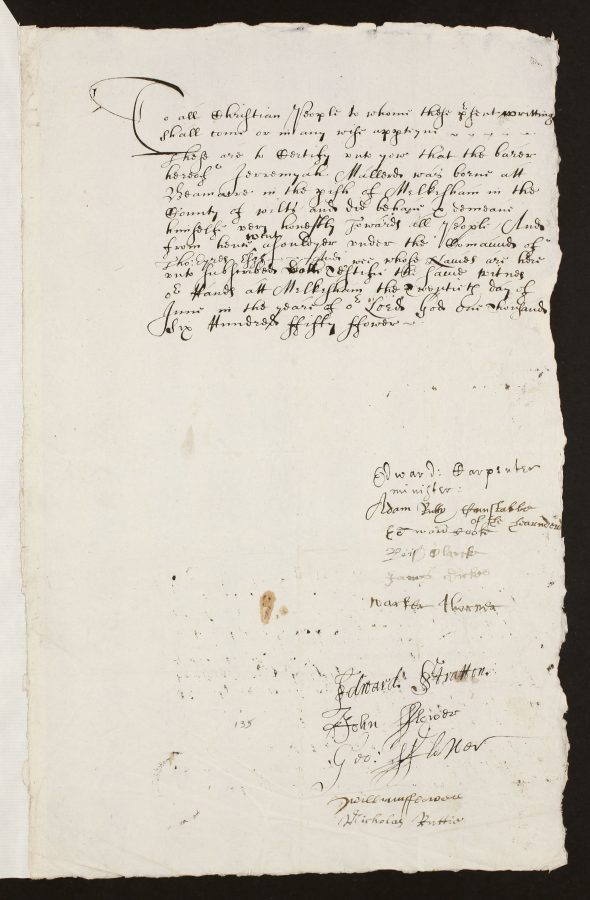 To all Christian People to whome these p'sent writting
shall come or in any wise apptyne
These are to Certify unto yow that the barer
hereof Jeremyah Mallerd was borne att
Beanacre in the p'ish of Melkesham in the
County of wilts and did behave & demeane
himselfe very honestly Towards all People And
from hence went a souldyer under the Comaund of
wee whose Names are here
unto subscribed doth Testifie the same witnes
or Hands att Melkesham the Twentieth day of
June in the yeare of or Lord God One Thousand
Six Hundred ffifty ffower
Edward: Carpenter
minister:
Adam Constable
of the
Edward Cooke
Clarke
James
Edward Stratton
John fflower
Geo: fflower
William fflower
Nicholas Ruttie
135